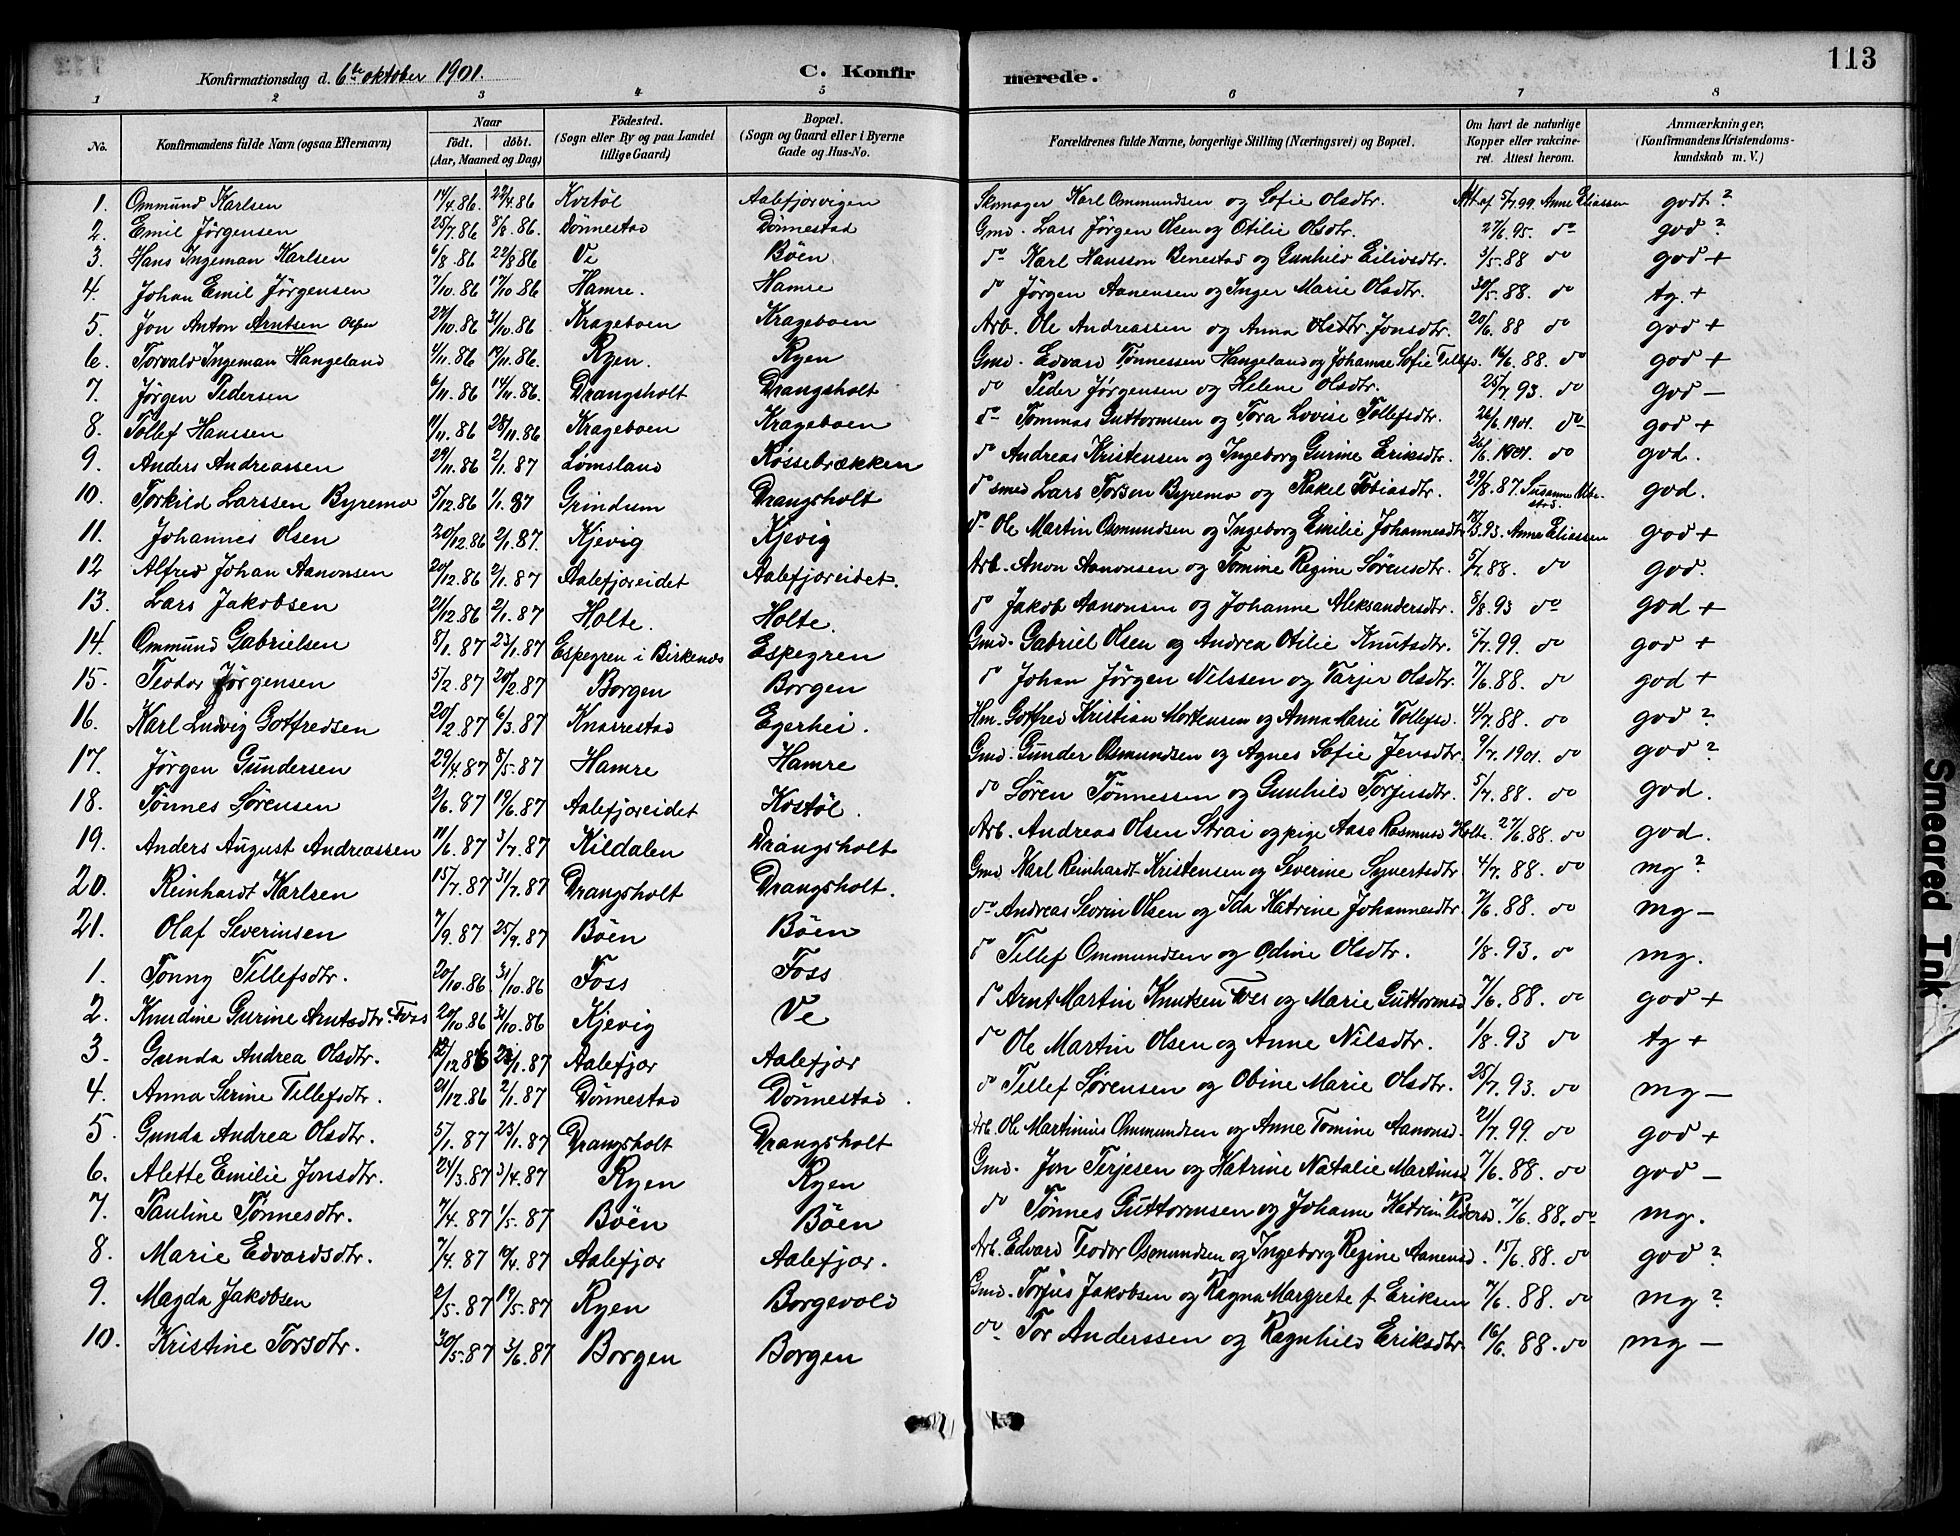 113
Konfirmationsdag d. 6te oktober 1901. C. Konfirmerede.
1 2 3 4 5 6 7 8
No. Konfirmandens fulde Navn (ogsaa Efternavn) Naar født. døbt. (Aar, Maaned og Dag) Fødested. (Sogn eller By og paa Landet tillige Gaard) Bopæl. (Sogn og Gaard eller i Byerne Gade og Hus-No. Forældrenes fulde Navne, borgerlige Stilling (Næringsvei) og Bopæl. Om havt de naturlige Kopper eller vakcineret. Attest herom. Anmærkninger. (Konfirmandens Kristendomskundskab m. V.)
1. Ommund Karlsen 14/4.86. 22/4.86 Kvstøl Aalefjærvigen Skomager Karl Ommundsen og Sofie Olsdtr. Att af 5/7.99. Anne Eliassen godt ?
2. Emil Jørgensen 25/7.86 8/8.86. Dønnestad Dønnestad Gmd. Lars Jørgen Olsen og Otilie Olsdtr. 27/6.95. do god ?
3. Hans Ingeman Karlsen 6/8.86 22/8.86 Ve Bøen do Karl Hansson Benestad og Gunhild Eilivsdtr. 3/5.88 do god +
4. Johan Emil Jørgensen 7/10.86 17/10.86 Hamre. Hamre do Jørgen Aanensen og Inger Marie Olsdtr. 30/5.88. do tg +
5. Jon Anton Arntsen Olsen 27/10.86 31/10.86 Krageboen Krageboen Arb. Ole Andreassen og Anna Olsdtr. Jonsdtr. 20/6.88 do god +
6. Torvald Ingeman Hangeland 4/11.86 19/11.86. Ryen. Ryen Gmd. Edvard Tønnessen Hangeland og Johanne Sofie Tellefs. 16/6.88. do god +
7. Jørgen Pedersen 6/11.86 14/11.86. Drangsholt Drangsholt do Peder Jørgensen og Helene Olsdtr. 25/7.93. do god –
8. Tollef Hanssen 11/11.86 28/11.86 Krageboen Krageboen do Tommas Guttormsen og Tora Lovise Tollefsdtr. 26/6.1901. do god +
9. Anders Andreassen 29/11.86 2/1.87 Lømsland Røssebrækken do Andreas Kristensen og Ingeborg Gurine Eriksdtr. 26/6.1901. do god.
10. Torkild Larssen Byremo 5/12.86 1/1.87 Grindum Drangsholt do smed Lars Torsen Byremo og Rakel Tobiasdtr. 29/8.87. Susanne god.
11. Johannes Olsen 20/12.86 2/1.87. Kjevig Kjevig do Ole Martin Osmundsen og Ingeborg Emilie Johannesdtr .93. Anne Eliassen god +
12 Alfred Johan Aanonsen 20/12.86 2/1.87 Aalefjæreidet Aalefjæreidet. Arb. Anon Aanonsen og Tomine Regine Sørensdtr. 5/7.88. do god.
13. Lars Jakobsen 21/12.86 2/1.87 Holte. Holte. do Jakob Aanonsen og Johanne Aleksandersdtr. 8/8.93 do god +
14. Ommund Gabrielsen 8/1.87 23/1.87 Espegren i Birkenes Espegren Gmd. Gabriel Olsen og Andrea Otilie Knutsdtr. 5/7.99. do god +
15. Teodor Jørgensen 5/2.87 20/2.87 Borgen Borgen do Johan Jørgen Nilssen og Tarjer Olsdtr. 7/6.88. do god +
16. Karl Ludvig Gotfredsen 20/2.87 6/3.87 Knarrestad Egerhei. Hm. Gotfred Kristian Mortensen og Anna Marie Tollefsd. 4/7.88. do god ?
17. Jørgen Gundersen 29/4.87 8/5.87 Hamre Hamre Gmd. Gunder Osmundsen og Agnes Sofie Jensdtr. 9/7.1901. do god ?
18. Tønnes Sørensen 2/6.87 19/6.87 Aalefjæreidet Kvstøl. do Søren Tønnessen og Gunhild Torjusdtr. 5/7.88. do god.
19. Anders August Andreassen 11/6.87 3/7.87 Kildalen Drangsholt Arb. Andreas Olsen Strai og pige Aase Rasmusd Holte. 27/6.88. do god.
20. Reinhardt Karlsen 15/7.87 31/7.87 Drangsholt Drangsholt. Gmd Karl Reinhardt Kristensen og Severine Syvertsdtr 4/7.88. do mg ?
21. Olaf Severinsen 7/9.87 25/9.87 Bøen Bøen do Andreas Severin Olsen og Ida Katrine Johannesdtr. 7/6.88. do mg –
1. Tonny Tellefsdtr. 20/10.86 31/10.86 Foss Foss do Tellef Ommundsen og Odine Olsdtr. 1/8.93. do mg.
2. Knudine Gurine Arntsdtr. Foss 20/10.86 31/10.86 Kjevig Ve do Arnt Martin Knutsen Foss og Marie Guttormsd 7/6.88. do god +
3. Gunda Andrea Olsdtr. 12/12.86 23/1.87 Aalefjær Aalefjær do Ole Martin Olsen og Anne Nilsdtr. 1/8.93 do tg +
4. Anna Serine Tellefsdtr. 21/12.86 2/1.87 Dønnestad Dønnestad. do Tellef Sørensen og Obine Marie Olsdtr. 25/7.93. do mg –
5. Gunda Andrea Olsdtr. 5/1.87 23/1.87 Drangsholt Drangsholt Arb. Ole Martinius Ommundsen og Anne Tomine Aanonsd. 21/7.99. do god +
6. Alette Emilie Jonsdtr. 24/3.87 3/4.87 Ryen Ryen Gmd. Jon Terjesen og Katrine Natalie Martinsd 7/6.88. do god –
7. Pauline Tønnesdtr. 7/4.87 1/5.87 Bøen Bøen do Tønnes Guttormsen og Johanne Katrine Pedersd. 7/6.88. do mg.
8. Marie Edvardsdtr. 7/4.87 19/4.87 Aalefjær Aalefjær. Arb. Edvard Teodor Osmundsen og Ingeborg Regine Aanensd. 15/6.88. do god ?
9. Magda Jakobsen 2/5.87 19/5.87 Ryen Borgevold Gmd. Torjus Jakobsen og Ragna Margrete f. Eriksen 7/6.88. do mg ?
10. Kristine Torsdtr. 30/5.87 3/6.87 Borgen Borgen do Tor Anderssen og Ragnhild Eriksdtr. 16/6.88. do mg –
Smeared Ink